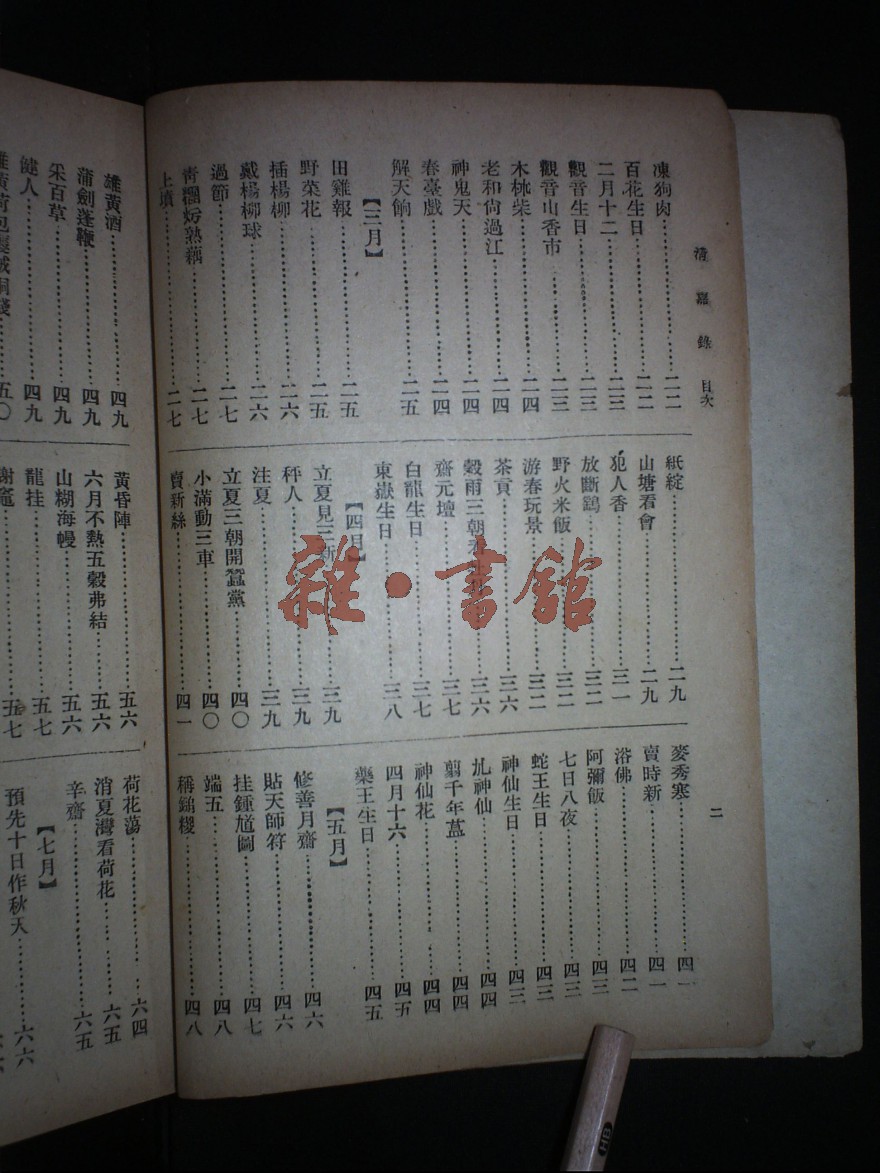 清嘉錄 目次
二
凍狗肉……二二
百花生日……二二
二月十二……二三
觀音生日……二三
觀音山香市……二三
木柹柴……二四
老和尙過江……二四
神鬼天……二四
春臺戲……二四
解天餉……二五
【三月】
田雞報……二五
野菜花……二五
插楊柳……二六
戴楊柳球……二六
過節……二七
靑糰𤇆熟藕……二七
上墳……二七
紙綻……二九
山塘看會……二九
犯人香……三一
放斷鷂……三二
野火米飯……三二
游春玩景……三二
茶貢……三六
穀雨三朝看……三六
齋元壇……三七
白龍生日……三七
東嶽生日……三八
【四月】
立夏見三新……三九
秤人……三九
注夏……三九
立夏三朝開蠶黨……四〇
小滿動三車……四〇
賣新絲……四一
麥秀寒……四一
賣時新……四一
浴佛……四二
阿彌飯……四三
七日八夜……四三
蛇王生日……四三
神仙生日……四三
乩神仙……四四
翦千年蒀……四四
神仙花……四四
四月十六……四五
藥王生日……四五
【五月】
修善月齋……四六
貼天師符……四六
挂鍾馗圖……四七
端五……四八
稱錘糉……四八
雄黃酒……四九
蒲劍蓬鞭……四九
采百草……四九
健人……四九
五〇
黃昏陣……五六
六月不熱五穀弗結……五六
山糊海幔……五六
龍挂……五七
謝竈……五七
荷花蕩……六四
消夏灣看荷花……六五
辛齋……六五
【七月】
預先十日作秋天……六六
雜·書館